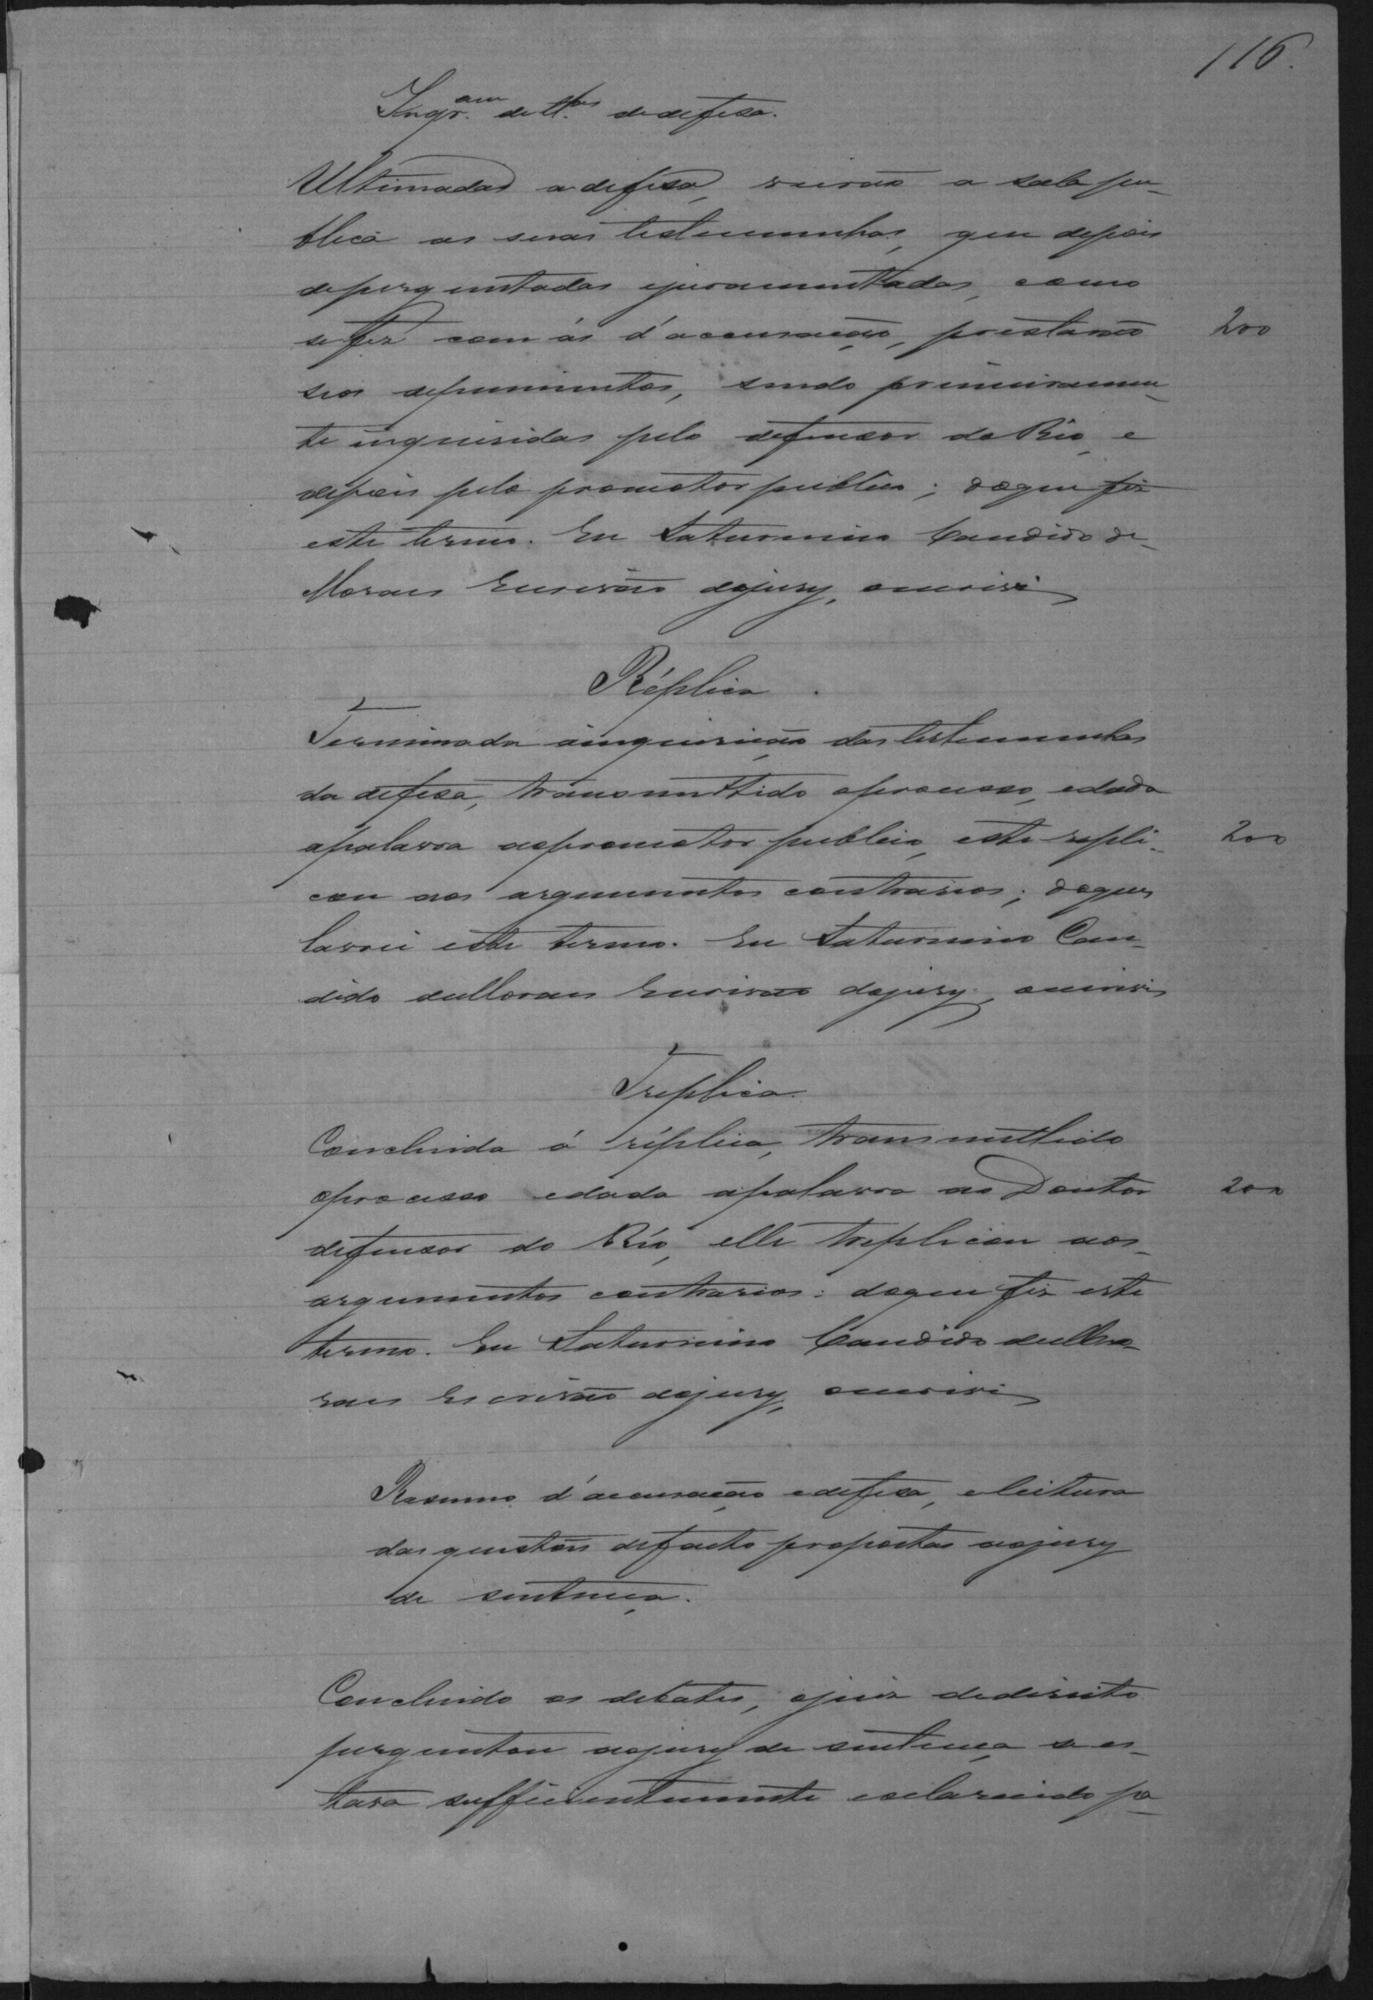 116.
Inqr.am de tt.as de defesa.
Ultimada a defesa, vierão a sala pu-
blica as suas testemunhas, que depois
de perguntadas e juramentadas, como
se fez com ás d'accusação, prestarão
seos depoimentos, sendo primeiramen-
te inqueridas pelo defensor do Réo, e
depois pelo promotor publico; do que fiz
este termo. Eu Saturnino Candido de
Moraes Escrivão do jury, o escrivi
200
Réplica.
Terminada a inquirição das testemunhas
da defesa, transmittido o processo, e dada
a palavra ao promotor publico, este repli-
cou aos argumentos contrarios; do que
lavrei este termo. Eu Saturnino Can-
dido de Moraes Escrivão do jury, o escrivi
200
Treplica.
Concluida á réplica, transmittido
o processo e dada a palavra ao Doutor
defensor do Réo, elle treplicou aos
argumentos contrarios: do que fiz este
termo. Eu Saturnino Candido de Mo-
raes Escrivão do jury, o escrivi
200
Resumo d'accusação e defesa, e leitura
das questões de facto propostas ao jury
de sentença.
Concluido os debates, o juiz de direito
perguntou ao jury de sentença se es-
tava sufficientemente esclarecido pa-